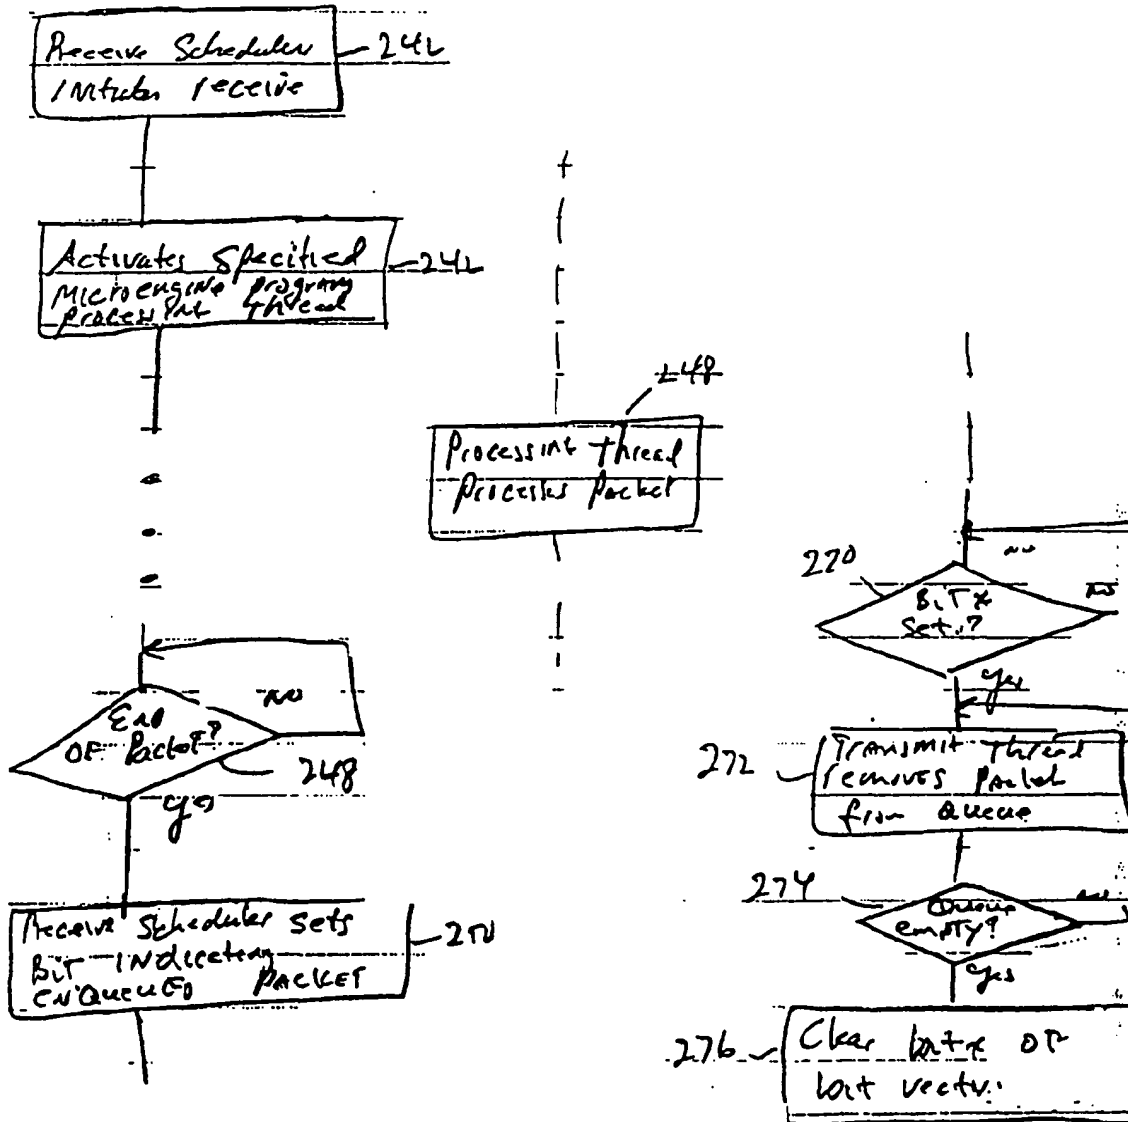 Receive Scheduler
initiates receive
242
Activates Specified
Microengine program
processing thread
242
248
Processing thread
processes packet
End
OF Packet?
NO
248
yes
Receive Scheduler sets
BIT indicating
ENQUEUED PACKET
250
270
NO
NO
BIT x
set?
yes
272
Transmit thread
removes packet
from Queue
274
Queue
empty?
NO
yes
276
Clear bit x OF
bit vector